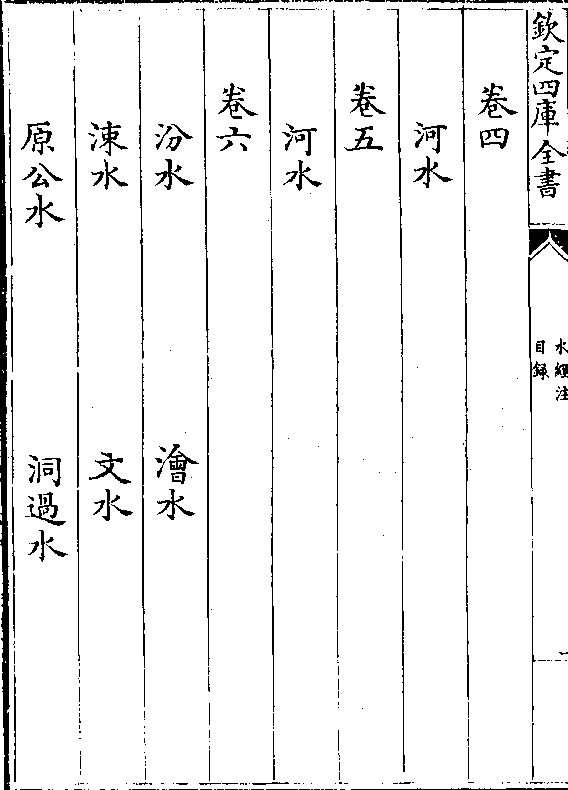 欽定四庫全書
水經注
目録
卷四
河水
卷五
河水
卷六
汾水 澮水
涑水 文水
原公水 洞過水